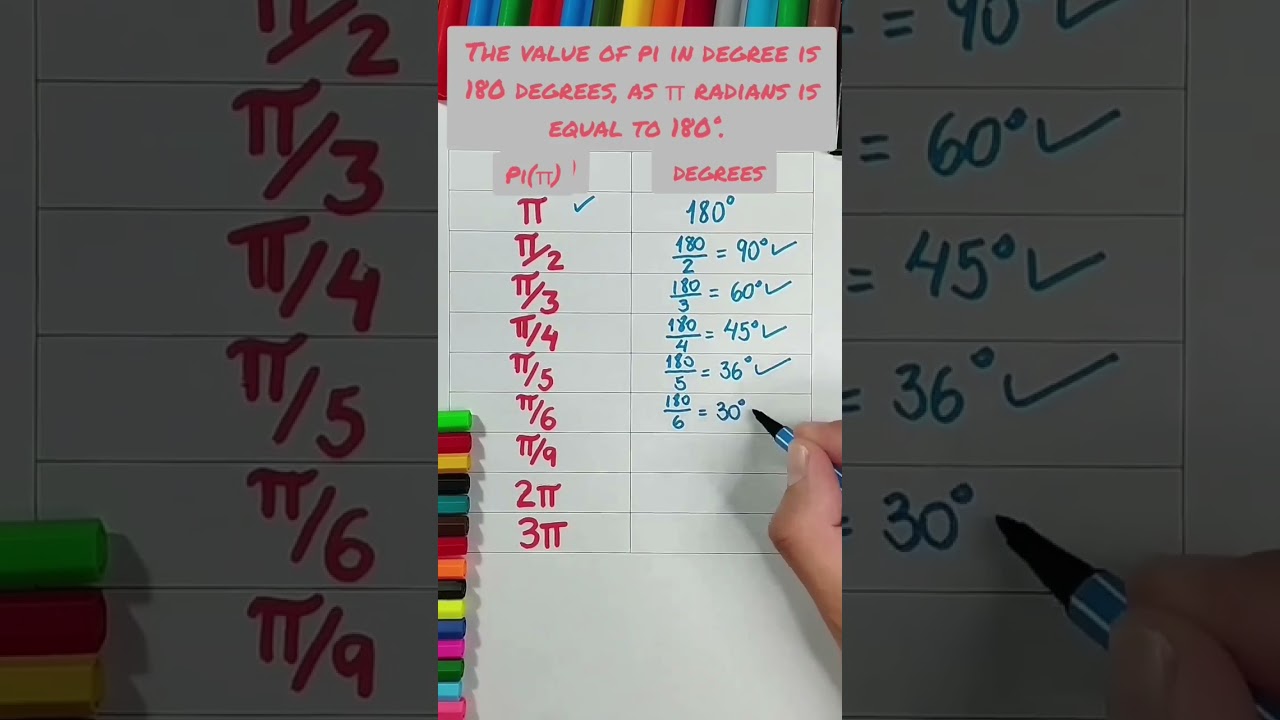 THE VALUE OF PI IN DEGREE IS
180 DEGREES, AS π RADIANS IS
EQUAL TO 180°.
PI(π) DEGREES
π ✓ 180°
π/2 180/2 = 90° ✓
π/3 180/3 = 60° ✓
π/4 180/4 = 45° ✓
π/5 180/5 = 36° ✓
π/6 180/6 = 30°
π/9
2π
3π
π/2 = 90° ✓
π/3 = 60° ✓
π/4 = 45° ✓
π/5 = 36° ✓
π/6 = 30°
π/9